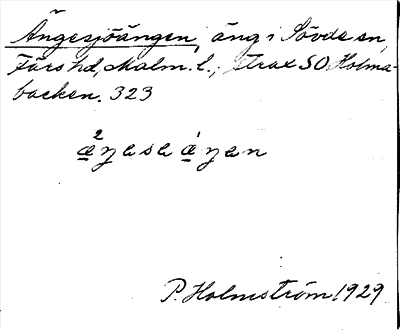 Ängesjöängen, äng i Sövde sn,
Färs hd, Malm. l.; strax SO Holma-
backen. 323
²æŋesa ¹æŋen
P. Holmström 1929